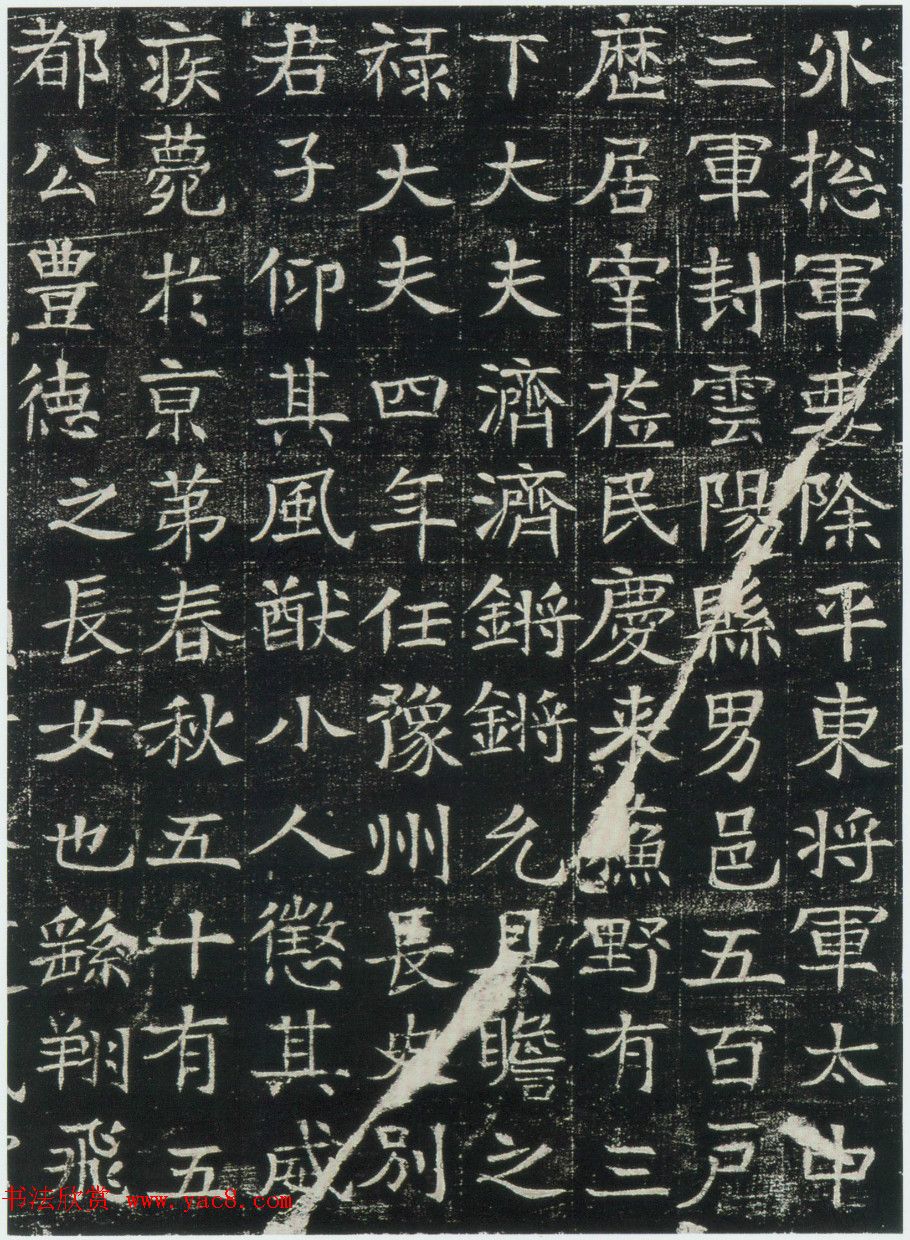 外揔軍要除平東将軍太中
三軍封雲陽縣男邑五百戶
歷居宰莅民慶来蘓野有三
下大夫濟濟鏘鏘允具瞻之
禄大夫四年任豫州長史別
君子仰其風猷小人懲其威
疾薨於京苐春秋五十有五
都公豐德之長女也繇翔飛
书法欣赏 www.yac8.com